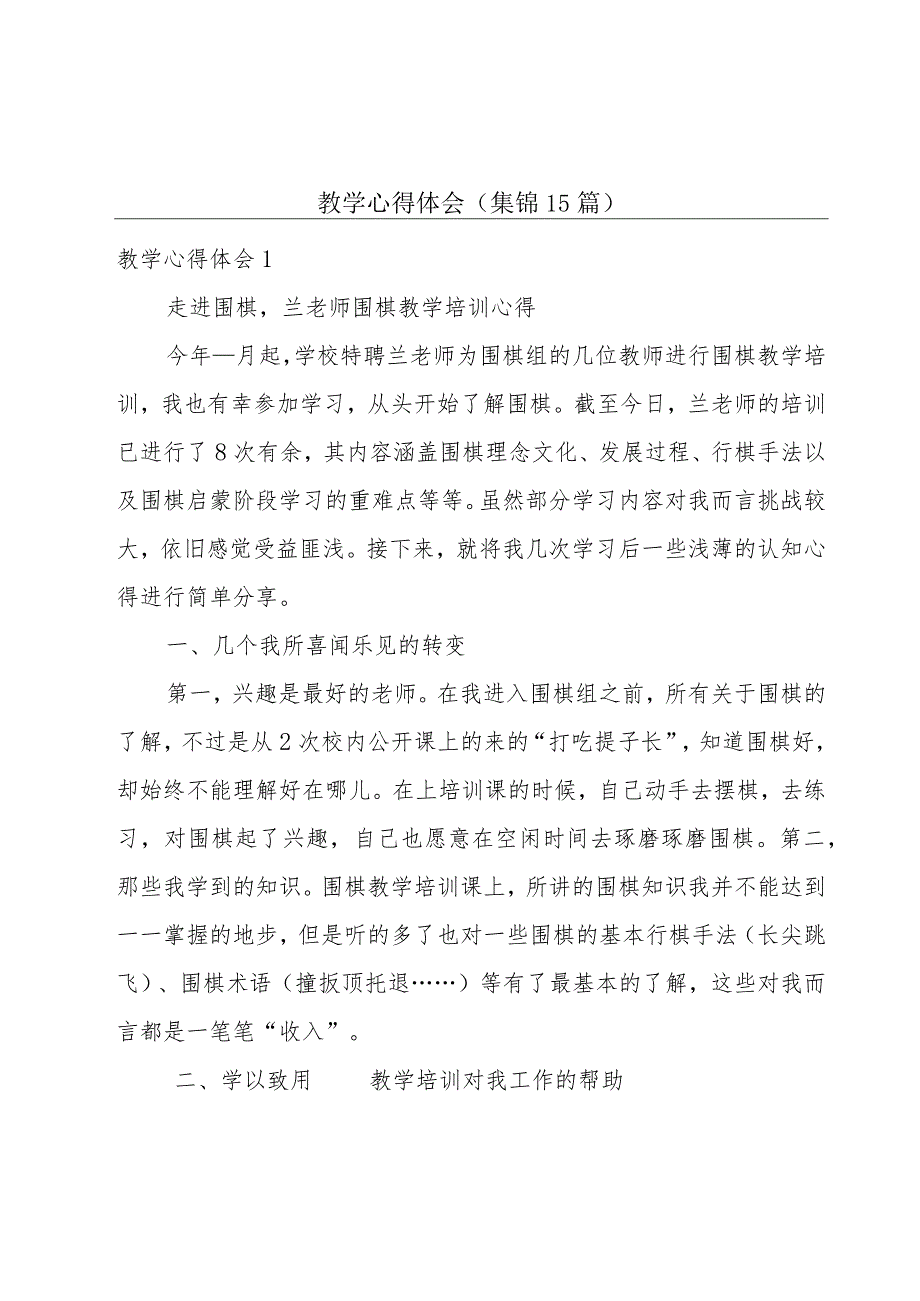 教学心得体会（集锦15篇）
教学心得体会1
走进围棋，兰老师围棋教学培训心得
今年—月起，学校特聘兰老师为围棋组的几位教师进行围棋教学培
训，我也有幸参加学习，从头开始了解围棋。截至今日，兰老师的培训
已进行了8次有余，其内容涵盖围棋理念文化、发展过程、行棋手法以
及围棋启蒙阶段学习的重难点等等。虽然部分学习内容对我而言挑战较
大，依旧感觉受益匪浅。接下来，就将我几次学习后一些浅薄的认知心
得进行简单分享。
一、几个我所喜闻乐见的转变
第一，兴趣是最好的老师。在我进入围棋组之前，所有关于围棋的
了解，不过是从2次校内公开课上的来的“打吃提子长”，知道围棋好，
却始终不能理解好在哪儿。在上培训课的时候，自己动手去摆棋，去练
习，对围棋起了兴趣，自己也愿意在空闲时间去琢磨琢磨围棋。第二，
那些我学到的知识。围棋教学培训课上，所讲的围棋知识我并不能达到
一一掌握的地步，但是听的多了也对一些围棋的基本行棋手法（长尖跳
飞）、围棋术语（撞扳顶托退……）等有了最基本的了解，这些对我而
言都是一笔笔“收入”。
二、学以致用 教学培训对我工作的帮助